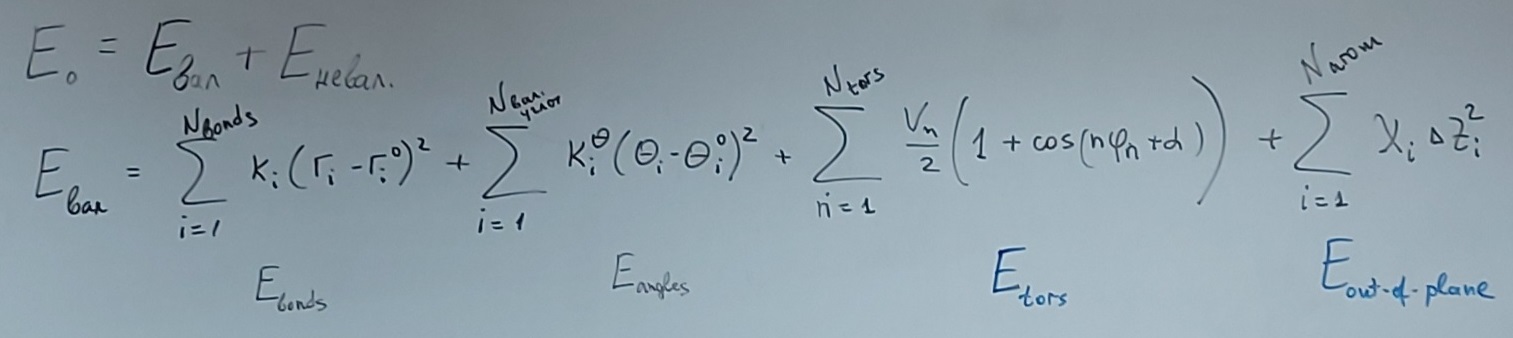 E₀ = Eвал + Eневал.
Eвал = ∑_{i=1}^{Nbonds} Kᵢ(rᵢ - rᵢ⁰)² + ∑_{i=1}^{Nвал. углов} Kᵢ^θ(θᵢ - θᵢ⁰)² + ∑_{n=1}^{Ntors} Vₙ/2 (1 + cos(nφₙ + α)) + ∑_{i=1}^{Nатом} χᵢ ΔZᵢ²
Ebonds Eangles Etors Eout-of-plane